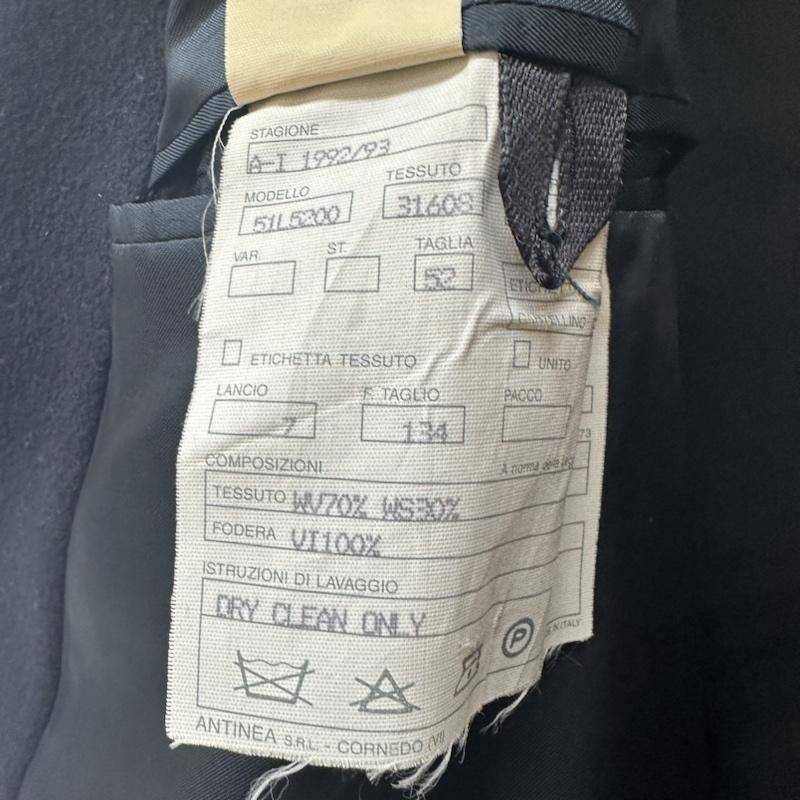 STAGIONE
A-I 1992/93
MODELLO TESSUTO
51L5200 31608
VAR. ST. TAGLIA
52
ETICHETTA TESSUTO UNITO
LANCIO F. TAGLIO PACCO
7 134
73
COMPOSIZIONI A norma della
TESSUTO WV70% WS30%
FODERA VI100%
ISTRUZIONI DI LAVAGGIO
DRY CLEAN ONLY
P
IN ITALY
ANTINEA S.R.L. - CORNEDO (VI)